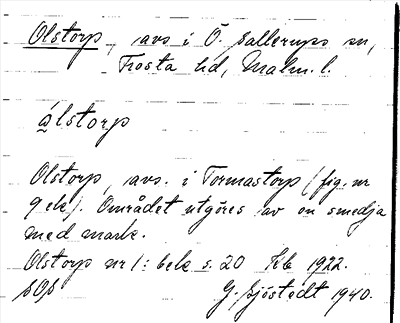 Olstorp, avs i Ö. Sallerups sn,
Frosta hd, Malm. l.
álstorp
Olstorp, avs. i Tormastorp (fig. nr
9 ek). Området utgöres av en smedja
med mark.
Olstorp nr 1: bek s. 20 Kb 1922.
SOS G. Sjöstedt 1940.